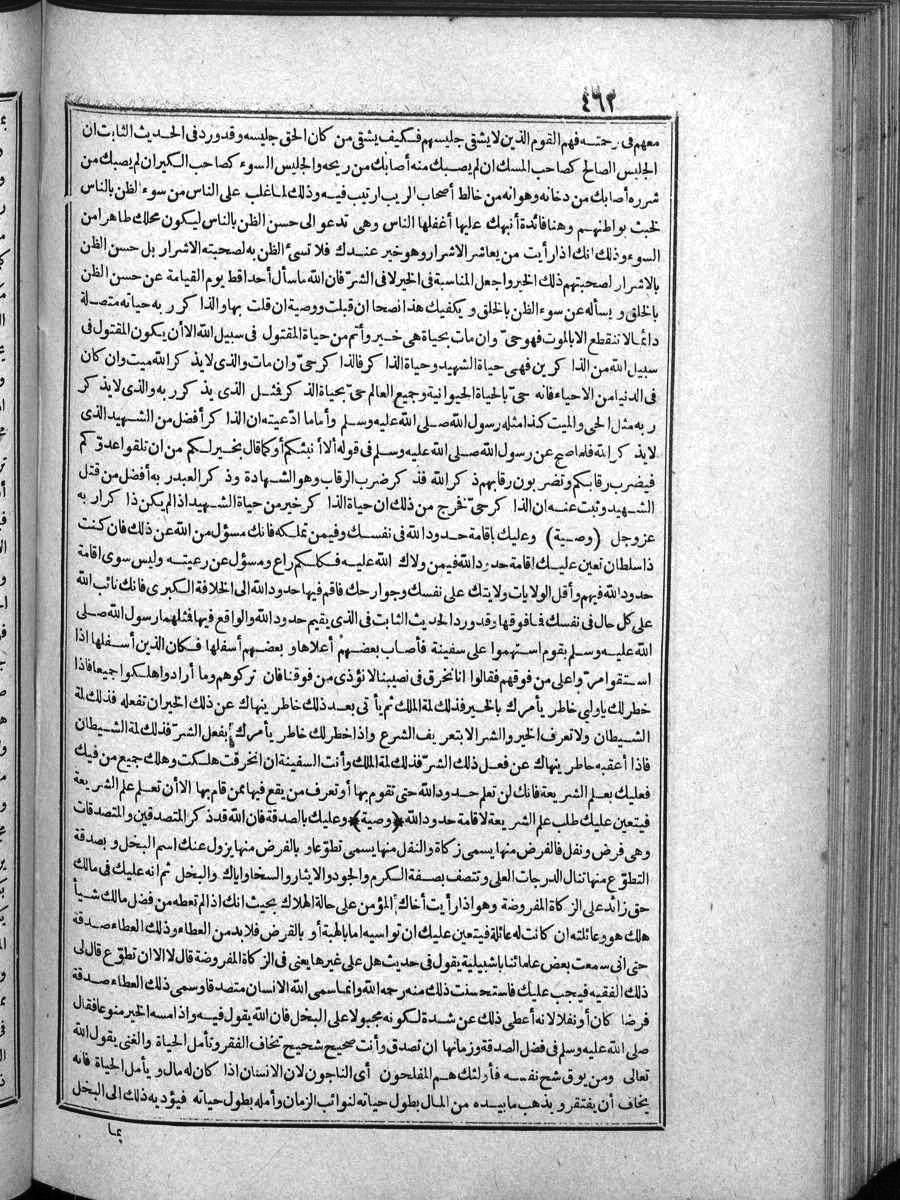 ٤٦٢
معهم فى رحمته فهم القوم الذين لا يشقى جليسهم فكيف يشقى من كان الحق جليسه وقد ورد فى الحديث الثابت ان
الجليس الصالح كصاحب المسك ان لم يصبك منه أصابك من ريحه والجليس السوء كصاحب الكير ان لم يصبك من
شرره أصابك من دخانه وهو انه من خالط أصحاب الريب ارتيب فيه وذلك لما غلب على الناس من سوء الظن بالناس
لخبث بواطنهم وهنا فائدة أنبهك عليها أغفلها الناس وهى تدعو الى حسن الظن بالناس ليكون محلك طاهرا من
السوء وذلك انك اذا رأيت من يعاشر الاشرار وهو خير عندك فلا تسئ الظن به لصحبته الاشرار بل حسن الظن
بالاشرار لصحبتهم ذلك الخير واجعل المناسبة فى الخير لا فى الشر فان الله ما سأل أحدا قط يوم القيامة عن حسن الظن
بالخلق ويسأله عن سوء الظن بالخلق ويكفيك هذا نصحا ان قبلت ووصية ان قلت بها والذاكر ربه حياته متصلة
دائما لا تنقطع الا بالموت فهو حىّ وان مات بحياة هى خير وأتم من حياة المقتول فى سبيل الله الا أن يكون المقتول فى
سبيل الله من الذاكرين فهى حياة الشهيد وحياة الذاكر فالذاكر حىّ وان مات والذى لا يذكر الله ميت وان كان
فى الدنيا من الاحياء فانه حىّ بالحياة الحيوانية وجميع العالم حىّ بحياة الذكر فمثل الذى يذكر ربه والذى لا يذكر
ربه مثل الحى والميت كذا مثله رسول الله صلى الله عليه وسلم وأما ما ادّعيته ان الذاكر أفضل من الشهيد الذى
لا يذكر الله فلما صح عن رسول الله صلى الله عليه وسلم فى قوله ألا أنبئكم أو كما قال بخير لكم من ان تلقوا عدوّكم
فيضرب رقابكم وتضربون رقابهم ذكر الله فذكر ضرب الرقاب وهو الشهادة وذكر العبد ربه أفضل من قتل
الشهيد وثبت عنه ان الذاكر حىّ فخرج من ذلك ان حياة الذاكر خير من حياة الشهيد اذا لم يكن ذاكرا ربه
عز وجل (وصية) وعليك باقامة حدود الله فى نفسك وفيمن تملكه فانك مسؤل من الله عن ذلك فان كنت
ذا سلطان تعين عليك اقامة حدود الله فيمن ولاك الله عليه فكلكم راع ومسؤل عن رعيته وليس سوى اقامة
حدود الله فيهم وأقل الولايات ولايتك على نفسك وجوارحك فاقم فيها حدود الله الى الخلافة الكبرى فانك نائب الله
على كل حال فى نفسك فما فوقها وقد ورد الحديث الثابت فى الذى يقيم حدود الله والواقع فيها فمثلهما رسول الله صلى
الله عليه وسلم بقوم استهموا على سفينة فأصاب بعضهم أعلاها وبعضهم أسفلها فكان الذين أسفلها اذا
استقوا مرّوا على من فوقهم فقالوا انا نخرق فى نصيبنا لا نؤذى من فوقنا فان تركوهم وما أرادوا هلكوا جميعا فاذا
خطر لك يا ولى خاطر يأمرك بالخير فذلك لمة الملك ثم يأتى بعد ذلك خاطر ينهاك عن ذلك الخير ان تفعله فذلك لمة
الشيطان ولا تعرف الخير والشر الا بتعريف الشرع واذا خطر لك خاطر يأمرك بفعل الشرّ فذلك لمة الشيطان
فاذا أعقبه خاطر ينهاك عن فعل ذلك الشرّ فذلك لمة الملك وأنت السفينة ان انخرقت هلكت وهلك جميع من فيك
فعليك بعلم الشريعة فانك لن تعلم حدود الله حتى تقوم بها أو تعرف من يقع فيها ممن قام بها الا أن تعلم علم الشريعة
فيتعين عليك طلب علم الشريعة لاقامة حدود الله (وصية) وعليك بالصدقة فان الله قد ذكر المتصدقين والمتصدقات
وهى فرض ونفل فالفرض منها يسمى زكاة والنفل منها يسمى تطوّعا و بالفرض منها يزول عنك اسم البخل و بصدقة
التطوّع منها تنال الدرجات العلى وتتصف بصفة الكرم والجود والايثار والسخاء واياك والبخل ثم انه عليك فى مالك
حق زائد على الزكاة المفروضة وهو اذا رأيت أخاك المؤمن على حالة الهلاك بحيث انك اذا لم تعطه من فضل مالك شيأ
هلك هو وعائلته ان كانت له عائلة فيتعين عليك ان تواسيه اما بالهبة أو بالقرض فلا بد من العطاء وذلك العطاء صدقة
حتى انى سمعت بعض علمائنا باشبيلية يقول فى حديث هل على غيرها يعنى فى الزكاة المفروضة قال لا الا ان تطوّع قال لى
ذلك الفقيه فيجب عليك فاستحسنت ذلك منه رحمه الله وانما سمى الله الانسان متصدقا وسمى ذلك العطاء صدقة
فرضا كان أو نفلا لانه أعطى ذلك عن شدة لكونه مجبولا على البخل فان الله يقول فيه واذا مسه الخير منوعا فقال
صلى الله عليه وسلم فى فضل الصدقة وزمانها ان تصدق وأنت صحيح شحيح تخاف الفقر وتأمل الحياة والغنى يقول الله
تعالى ومن يوق شح نفسه فأولئك هم المفلحون أى الناجون لان الانسان اذا كان له مال و يأمل الحياة فانه
يخاف أن يفتقر و يذهب ما بيده من المال بطول حياته لنوائب الزمان وأمله بطول حياته فيؤديه ذلك الى البخل
بما